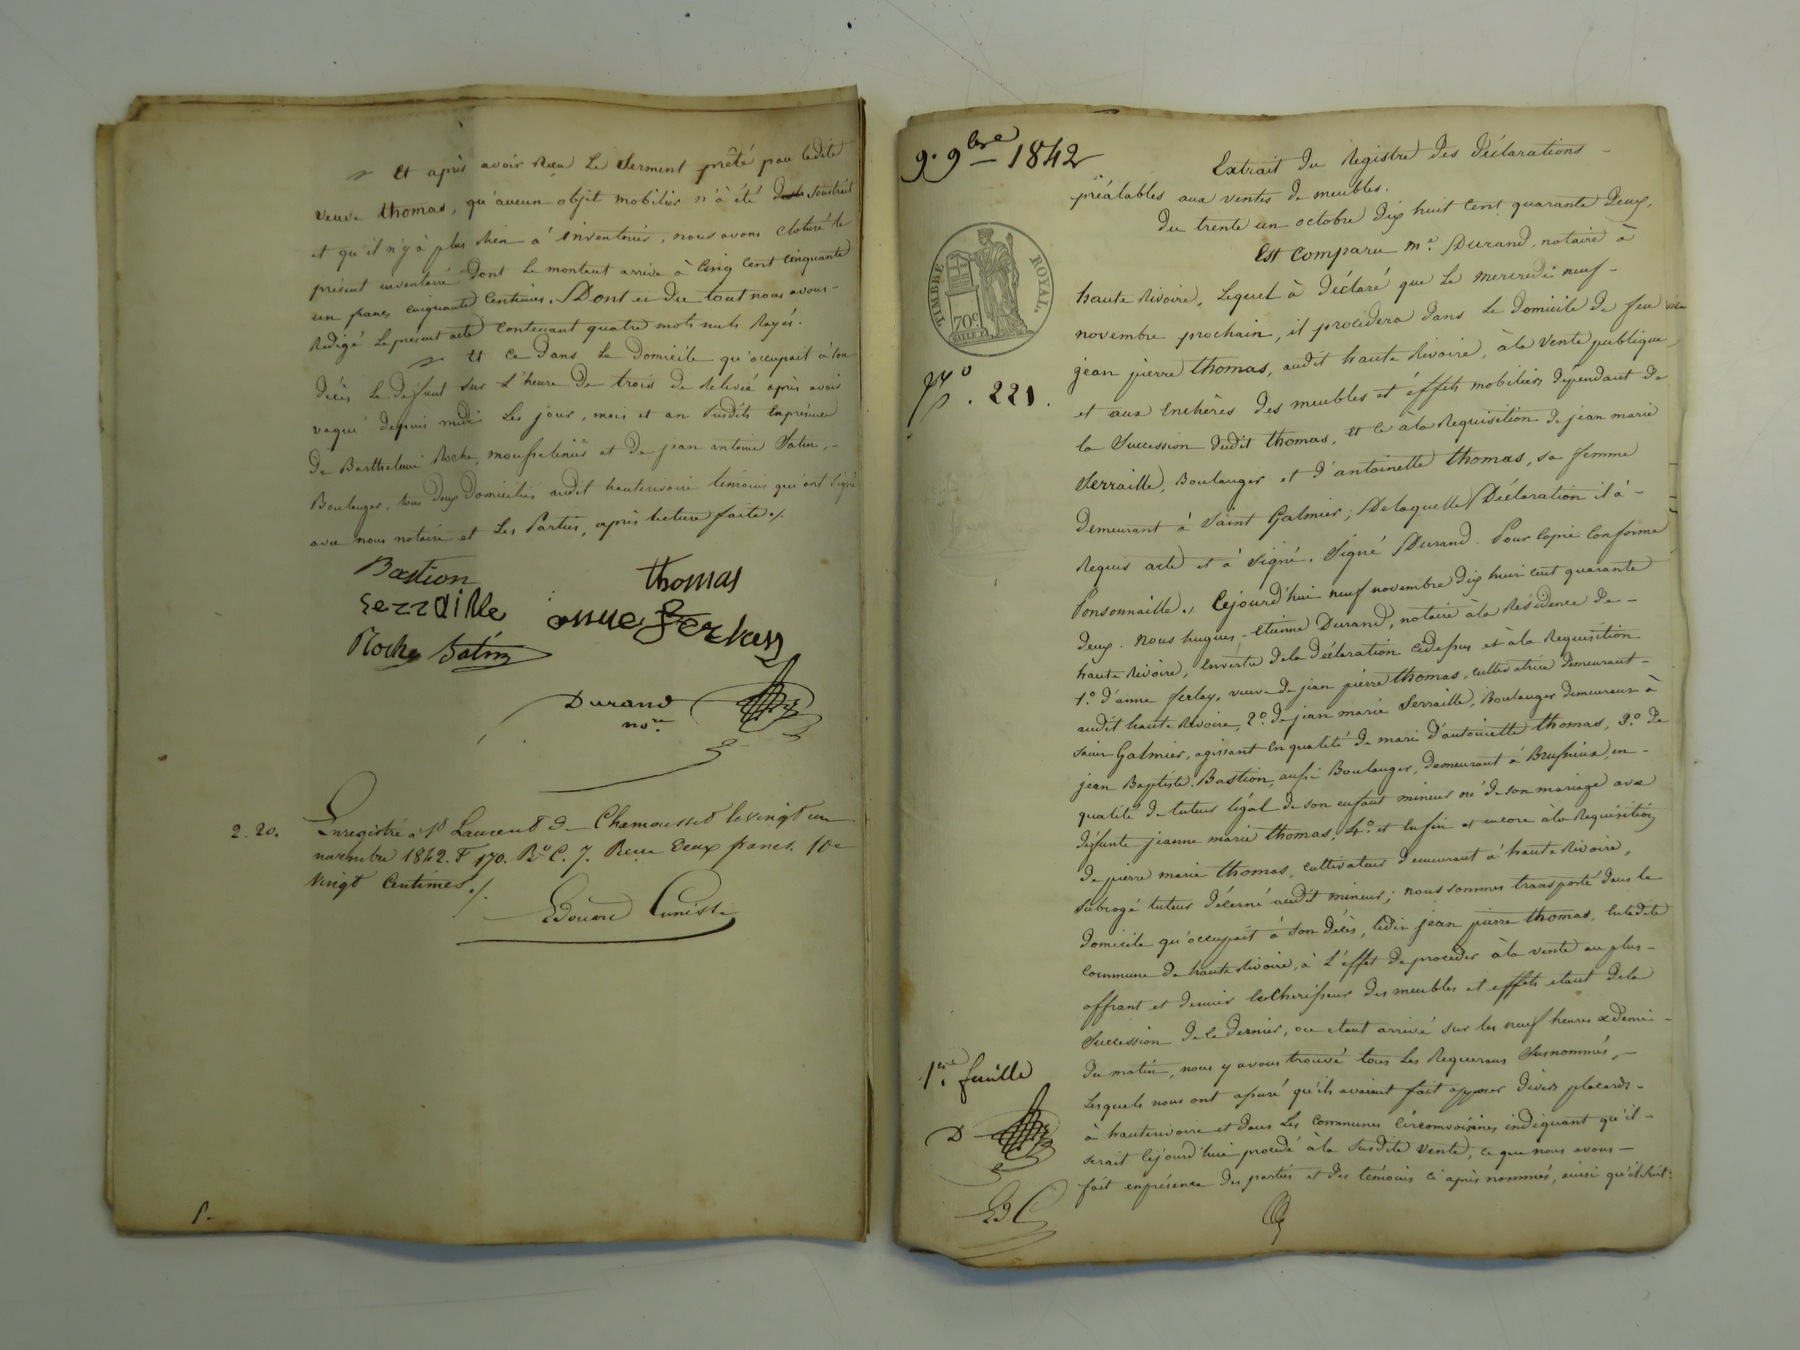 Et après avoir reçu le serment prêté par ladite
veuve thomas, qu'aucun objet mobilier n'à été soustrait
et qu'il n'y à plus rien à inventorier, nous avons cloturé le
présent inventaire dont le montant arrive à Cinq cent cinquante
un francs cinquante centimes. Dont et du tout nous avons
Rédigé le présent acte contenant quatre mots nuls Rayés.
Et ce dans le domicile qu'occupait à son
décès le défunt sur l'heure de trois de relevée après avoir
vaqué depuis midi les jour, mois et an susdits en présence
de Barthelemi Roche, mousselinier et de jean antoine Satin,
Boulanger, tous deux domiciliés audit hauterivoire témoins qui ont signé
avec nous notaire et les Parties, après lecture faite ./.
Bastion thomas
Serraille anne ferlay
Roche Satin
Durand
nore.
2. 20.
Enregistré à St Laurent de Chamousset le vingt un
novembre 1842. F 170. Ro C. 7. Reçu deux francs. 10e
vingt centimes ./.
Edouard
9. 9bre 1842
Extrait du Registre des déclarations
préalables aux ventes de meubles.
Du trente un octobre dix huit cent quarante deux,
Est comparu me. Durand, notaire à
haute Rivoire, lequel à déclaré que le mercredi neuf
novembre prochain, il procédera dans le domicile de feu
jean pierre thomas, audit haute Rivoire, à la vente publique
et aux enchères des meubles et éffets mobiliers dépendant de
la succession dudit thomas, et ce à la Requisition de jean marie
Serraille, Boulanger et d'antoinette thomas, sa femme
demeurant à Saint Galmier; De laquelle Déclaration il à
Requis acte et à signé. Signé Durand. Pour copie conforme
Ponsonnaille. Cejourd'hui neuf novembre dix huit cent quarante
deux. Nous hugues-Etienne Durand, notaire à la Résidence de
haute Rivoire, En vertu de la déclaration cidessus et à la Requisition
1o. d'anne ferlay, veuve de jean pierre thomas, cultivatrice demeurant
audit haute Rivoire, 2o. de jean marie Serraille, Boulanger demeurant à
saint Galmier, agissant en qualité de mari d'antoinette thomas, 3o. de
jean Baptiste Bastion, aussi Boulanger, demeurant à Brussieux, en
qualité de tuteur légal de son enfant mineur né de son mariage avec
défunte jeanne marie thomas, 4o. et enfin et encore à la Requisition
de pierre marie thomas, cultivateur demeurant à haute Rivoire,
subrogé tuteur décerné audit mineur; nous sommes transporté dans le
domicile qu'occupait à son décès, ledit jean pierre thomas, en ladite
commune de haute Rivoire, à l'effet de procéder à la vente au plus
offrant et dernier enchérisseur des meubles et effets étant de la
succession de ce dernier, ou etant arrivé sur les neuf heures & demi
du matin, nous y avons trouvé tous les Requerans susnommés,
Lesquels nous ont assuré qu'ils avaient fait apposer divers placards
à hauterivoire et dans les communes circonvoisines indiquant qu'il
serait cejourd'hui procédé à la susdite vente, ce que nous avons
fait en présence des parties et des témoins ci après nommés, ainsi qu'il suit:
TIMBRE ROYAL
70c.
No. 221.
1ere. feuille
D
Ed C